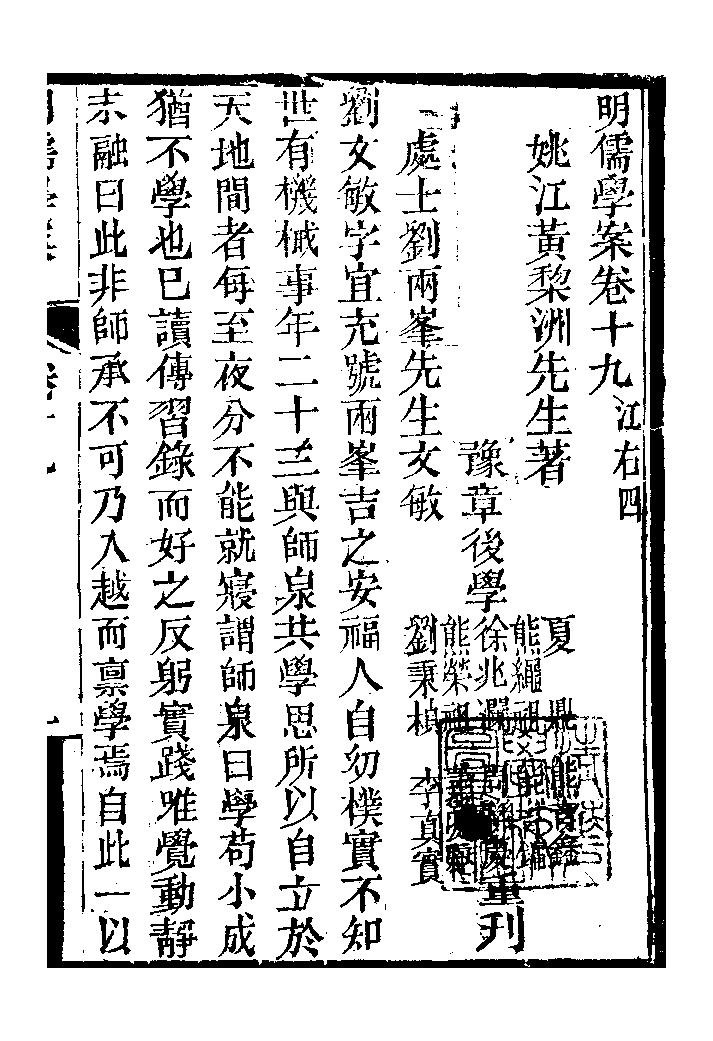 明儒學案卷十九 江右四
姚江黃棃洲先生著
夏鼎 熊育鏞
熊繩祖 熊育鑫
豫章後學 徐兆瀾 重刊
熊榮祖
劉秉楨 李真實
處士劉兩峯先生文敏
劉文敏字宜充號兩峯吉之安福人自幼樸實不知
世有機械事年二十三與師泉共學思所以自立於
天地間者每至夜分不能就寢謂師泉曰學苟小成
猶不學也已讀傳習錄而好之反躬實踐唯覺動靜
未融曰此非師承不可乃入越而稟學焉自此一以